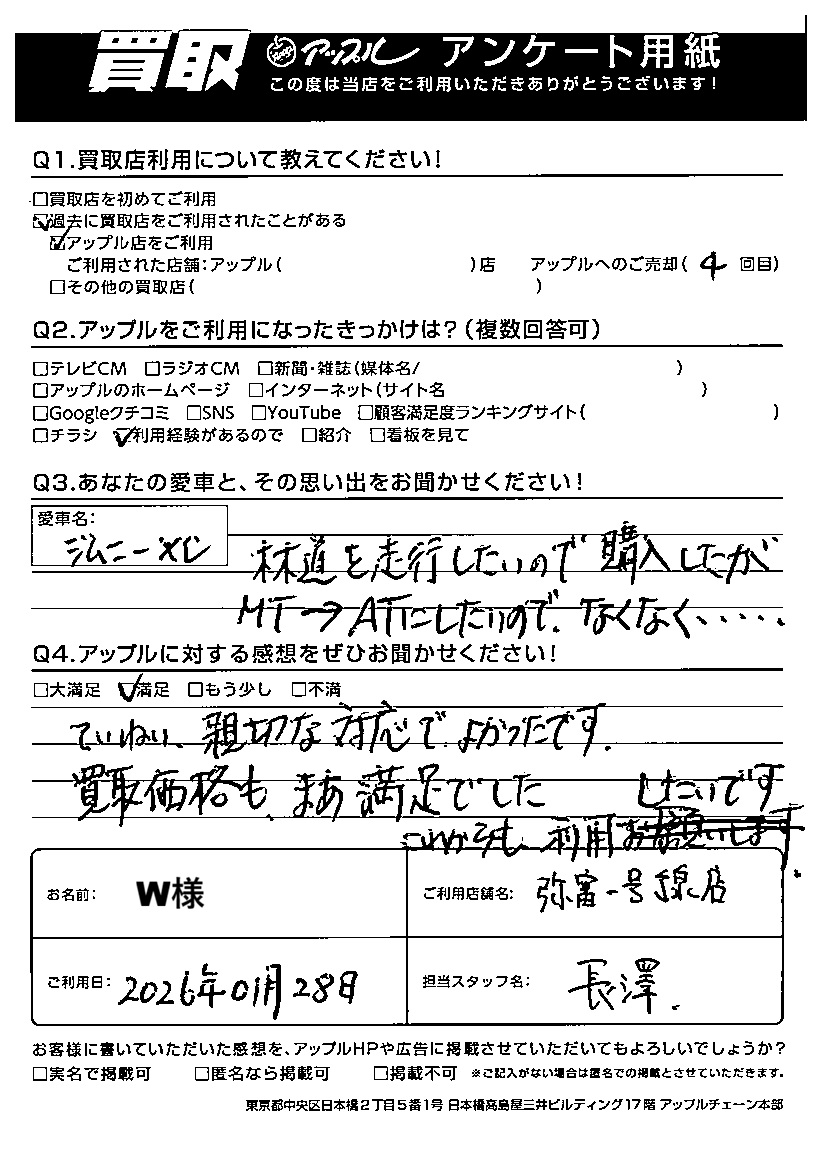 買取 アップル アンケート用紙
この度は当店をご利用いただきありがとうございます!
Q1.買取店利用について教えてください!
□買取店を初めてご利用
☑過去に買取店をご利用されたことがある
☑アップル店をご利用
ご利用された店舗:アップル( )店 アップルへのご売却( 4 回目)
□その他の買取店( )
Q2.アップルをご利用になったきっかけは?(複数回答可)
□テレビCM □ラジオCM □新聞・雑誌(媒体名/ )
□アップルのホームページ □インターネット(サイト名 )
□Googleクチコミ □SNS □YouTube □顧客満足度ランキングサイト( )
□チラシ ☑利用経験があるので □紹介 □看板を見て
Q3.あなたの愛車と、その思い出をお聞かせください!
愛車名:
ジムニーXC 林道を走行したいので購入したが
MT→ATにしたいので、なくなく・・・・・
Q4.アップルに対する感想をぜひお聞かせください!
□大満足 ☑満足 □もう少し □不満
ていねい、親切な対応でよかったです.
買取価格も、まあ満足でした したいです
これからも、利用お願いします.
お名前: W様 ご利用店舗名: 弥富一号線店
ご利用日: 2026年01月28日 担当スタッフ名: 長澤.
お客様に書いていただいた感想を、アップルHPや広告に掲載させていただいてもよろしいでしょうか?
□実名で掲載可 □匿名なら掲載可 □掲載不可 ※ご記入がない場合は匿名での掲載とさせていただきます。
東京都中央区日本橋2丁目5番1号 日本橋髙島屋三井ビルディング17階 アップルチェーン本部